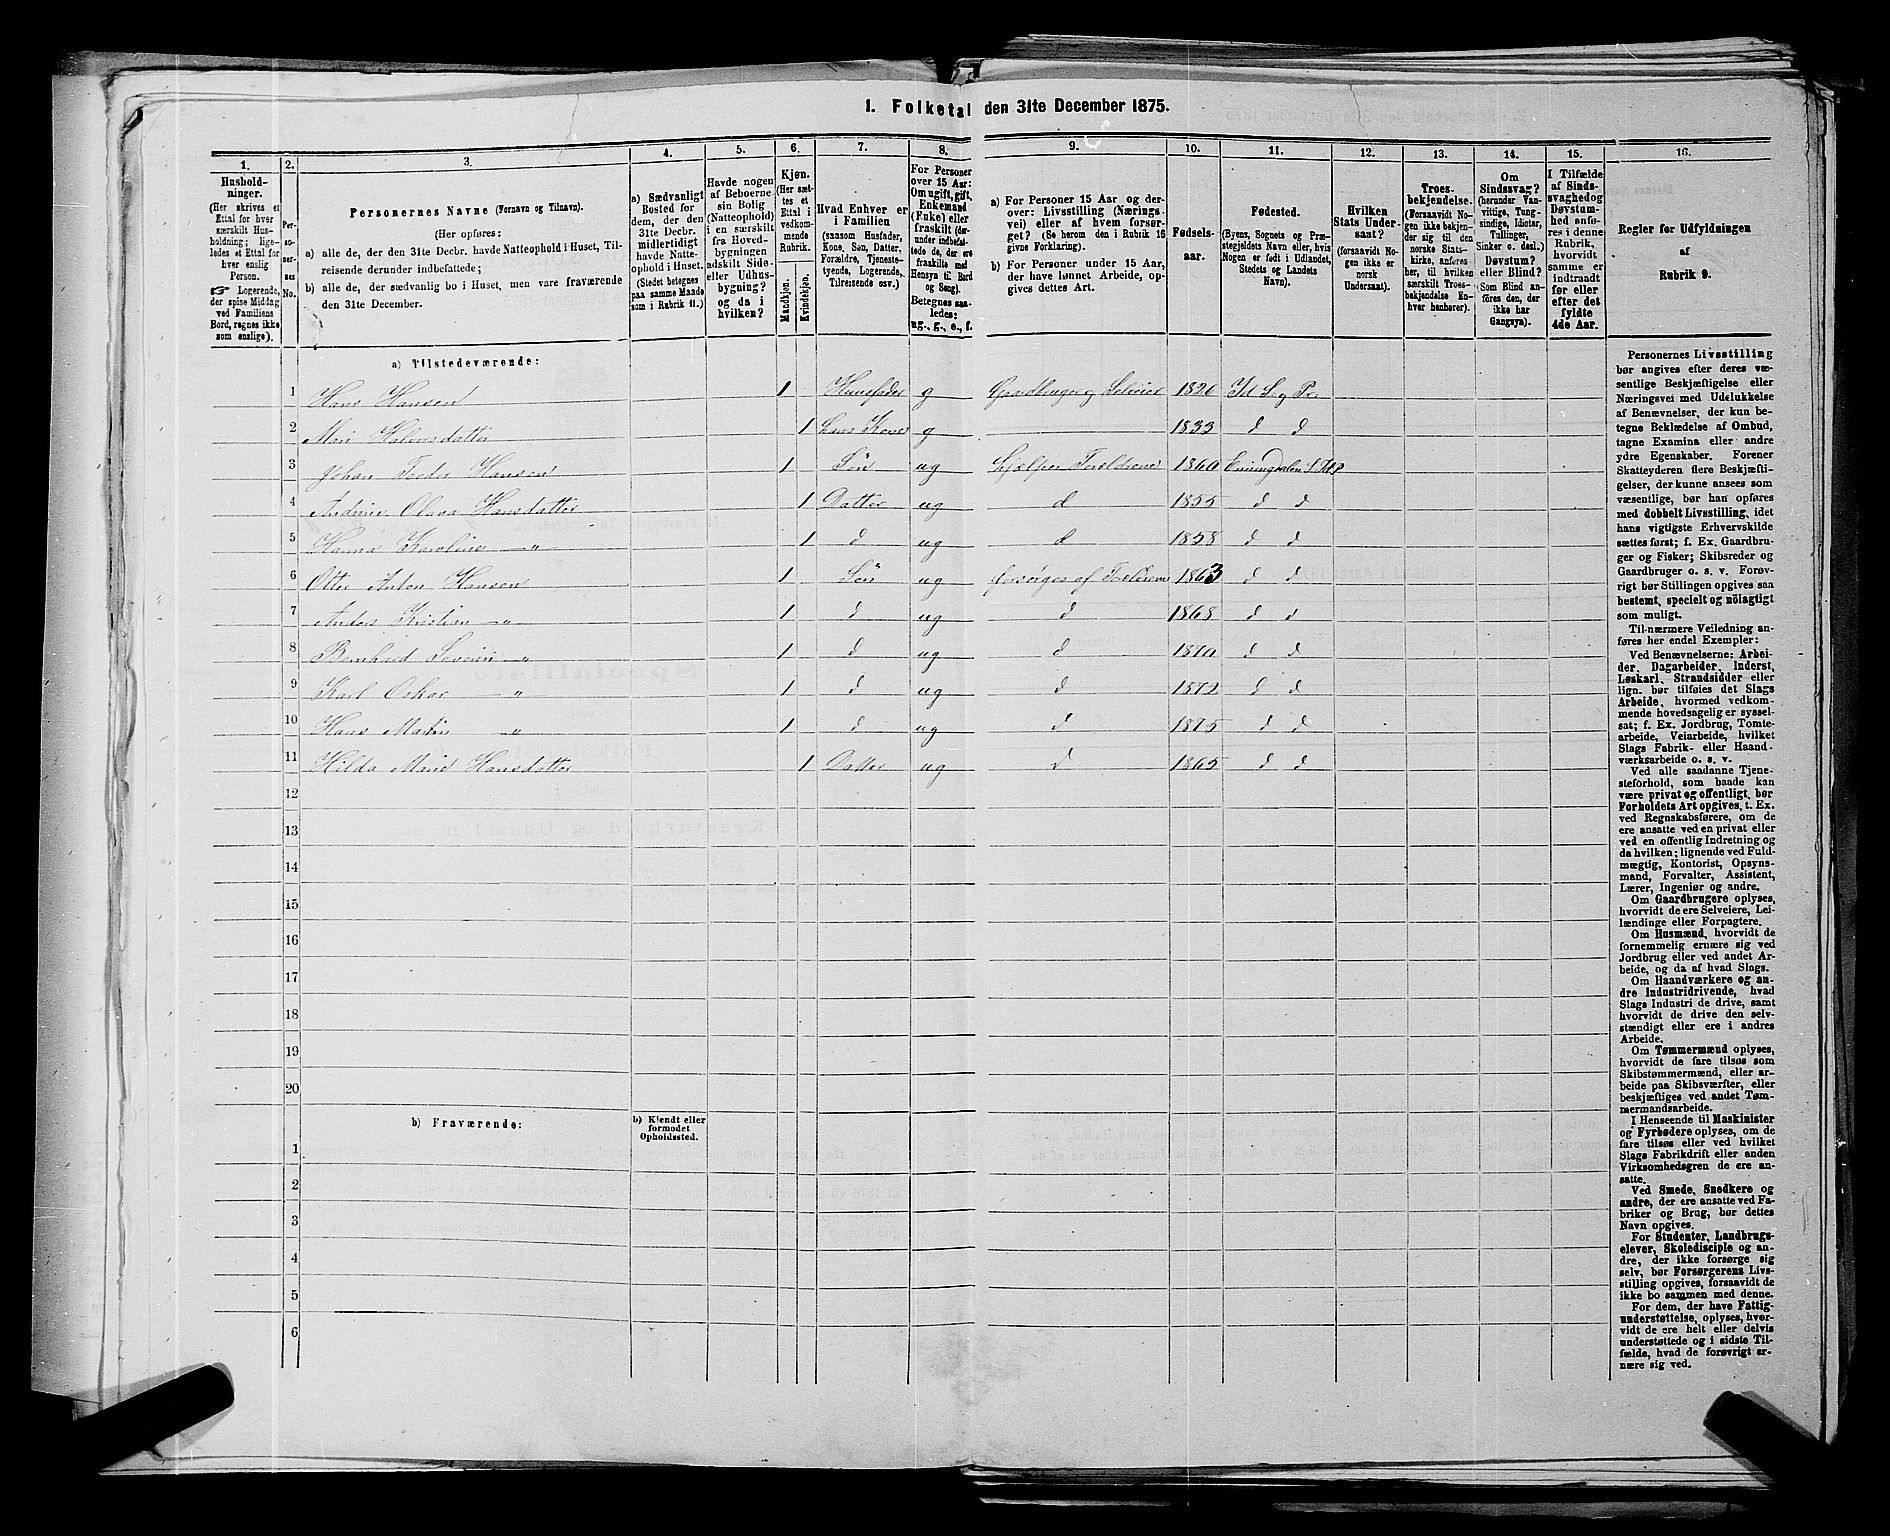 1. Folketal den 31te December 1875.
1. 2. 3. 4. 5. 6. 7. 8. 9. 10. 11. 12. 13. 14. 15. 16.
Husholdninger.
(Her skrives et
Ettal for hver
særskilt Husholdning;
ligeledes et Ettal for
hver enslig
Person.
☞ Logerende,
der spise Middag
ved Familiens
Bord, regnes ikke
som enslige).
Personernes No.
Personernes Navne (Fornavn og Tilnavn).
(Her opføres:
a) alle de, der den 31te Decbr. havde Natteophold i Huset, Tilreisende
derunder indbefattede;
b) alle de, der sædvanlig bo i Huset, men vare fraværende
den 31te December.
a) Sædvanligt
Bosted for
dem, der den
31te Decbr.
midlertidigt
havde Natteophold
i Huset.
(Stedet betegnes
paa samme Maade
som i Rubrik 11.)
Havde nogen
af Beboerne
sin Bolig
(Natteophold)
i en særskilt
fra Hovedbygningen
adskilt Side-
eller Udhusbygning?
og da i
hvilken?
Kjøn.
(Her sættes
et
Ettal i
vedkommende
Rubrik.
Mandkjøn.
Kvindekjøn.
Hvad Enhver er
i Familien
(saasom Husfader,
Kone, Søn, Datter,
Forældre, Tjenestetyende,
Logerende,
Tilreisende osv.)
For Personer
over 15 Aar:
Om ugift, gift,
Enkemand
(Enke) eller
fraskilt (derunder
indbefattede
de, der ere
fraskilte med
Hensyn til Bord
og Seng).
Betegnes saaledes:
ug., g., e., f.
a) For Personer 15 Aar og derover:
Livsstilling (Næringsvei)
eller af hvem forsørget?
(Se herom den i Rubrik 16
givne Forklaring).
b) For Personer under 15 Aar,
der have lønnet Arbeide, opgives
dettes Art.
Fødselsaar.
Fødested.
(Byens, Sognets og Præstegjeldets
Navn eller, hvis
Nogen er født i Udlandet,
Stedets og Landets
Navn).
Hvilken
Stats Undersaat?
(forsaavidt Nogen
ikke er
norsk
Undersaat).
Troesbekjendelse.
(Forsaavidt Nogen
ikke bekjender
sig til den
norske Statskirke,
anføres
her, til hvilken
særskilt Troesbekjendelse
Enhver
henhører).
Om
Sindssvag?
(herunder Vanvittige,
Idioter,
Tullinger,
Sinker o. desl.)
Døvstum?
eller Blind?
(Som Blind anføres
den, der
ikke har
Gangsyn).
I Tilfælde
af Sindssvaghed
og
Døvstumhed
anføres
i denne
Rubrik,
hvorvidt
samme er
indtraadt
før eller
efter det
fyldte
4de Aar.
Regler for Udfyldningen
af
Rubrik 9.
a) Tilstedeværende:
1 Hans Hansen 1 Huusfader g Gaardbruger og Selveier 1826 Id S. og Pr.
2 Mari Halvorsdatter 1 hans Kone g 1833 d d
3 Johan Peder Hansen 1 Søn ug hjælper Forældrene 1860 Enningdalen S. Id P
4 Andrine Olava Hansdatter 1 Datter ug d 1855 d d
5 Hanna Karoline — „ 1 d ug d 1858 d d
6 Otto Anton Hansen 1 Søn ug forsørges af Forældrene 1863 d d
7 Anders Kristian — „ 1 d ug d 1868 d d
8 Bernhard Severin „ 1 d ug d 1870 d d
9 Karl Oskar — „ 1 d ug d 1872 d d
10 Hans Martin „ 1 d ug d 1875 d d
11 Hilda Marie Hansdatter 1 Datter ug d 1865 d d
12
13
14
15
16
17
18
19
20
b) Fraværende:
b) Kjendt eller
formodet
Opholdssted.
1
2
3
4
5
6
Personernes Livsstilling
bør angives efter deres væsentlige
Beskjæftigelse eller
Næringsvei med Udelukkelse
af Benævnelser, der kun betegne
Beklædelse af Ombud,
tagne Examina eller andre
ydre Egenskaber. Forener
Skatteyderen flere Beskjæftigelser,
der kunne ansees som
væsentlige, bør han opføres
med dobbelt Livsstilling, idet
hans vigtigste Erhvervskilde
sættes først; f. Ex. Gaardbruger
og Fisker; Skibsreder og
Gaardbruger o. s. v. Forøvrigt
bør Stillingen opgives saa
bestemt, specielt og nöiagtigt
som muligt.
Til nærmere Veiledning anføres
her endel Exempler:
Ved Benævnelserne: Arbeider,
Dagarbeider, Inderst,
Løskarl, Strandsidder eller
lign. bør tilføies det Slags
Arbeide, hvormed vedkommende
hovedsagelig er sysselsat;
f. Ex. Jordbrug, Tomtearbeide,
Veiarbeide, hvilket
Slags Fabrik- eller Haandværksarbeide
o. s. v.
Ved alle saadanne Tjenesteforhold,
som baade kan
være privat og offentligt, bør
Forholdets Art opgives, t. Ex.
ved Regnskabsførere, om de
ere ansatte ved en privat eller
ved en offentlig Indretning og
da hvilken; lignende ved Fuldmægtig,
Kontorist, Opsynsmand,
Forvalter, Assistent,
Lærer, Ingeniør og andre.
Om Gaardbrugere oplyses,
hvorvidt de ere Selveiere, Leilændinge
eller Forpagtere.
Om Husmænd, hvorvidt de
fornemmelig ernære sig ved
Jordbrug eller ved andet Arbeide,
og da af hvad Slags.
Om Haandværkere og andre
Industridrivende, hvad
Slags Industri de drive, samt
hvorvidt de drive den selvstændigt
eller ere i andres
Arbeide.
Om Tømmermænd oplyses,
hvorvidt de fare tilsøs som
Skibstømmermænd, eller arbeide
paa Skibsværfter, eller
beskjæftiges ved andet Tømmermandsarbeide.
I Henseende til Maskinister
og Fyrbødere oplyses, om de
fare tilsøs eller ved hvilket
Slags Fabrikdrift eller anden
Virksomhedsgren de ere ansatte.
Ved Smede, Snedkere og
andre, der ere ansatte ved Fabriker
og Brug, bør dettes
Navn opgives.
For Studenter, Landbrugselever,
Skoledisciple og andre,
der ikke forsørge sig
selv, bør Forsørgerens Livsstilling
opgives, forsaavidt de
ikke bo sammen med denne.
For dem, der have Fattigunderstøttelse,
oplyses, hvorvidt
de ere helt eller delvis
understøttede og i sidste Tilfælde,
hvad de forøvrigt ernære
sig ved.